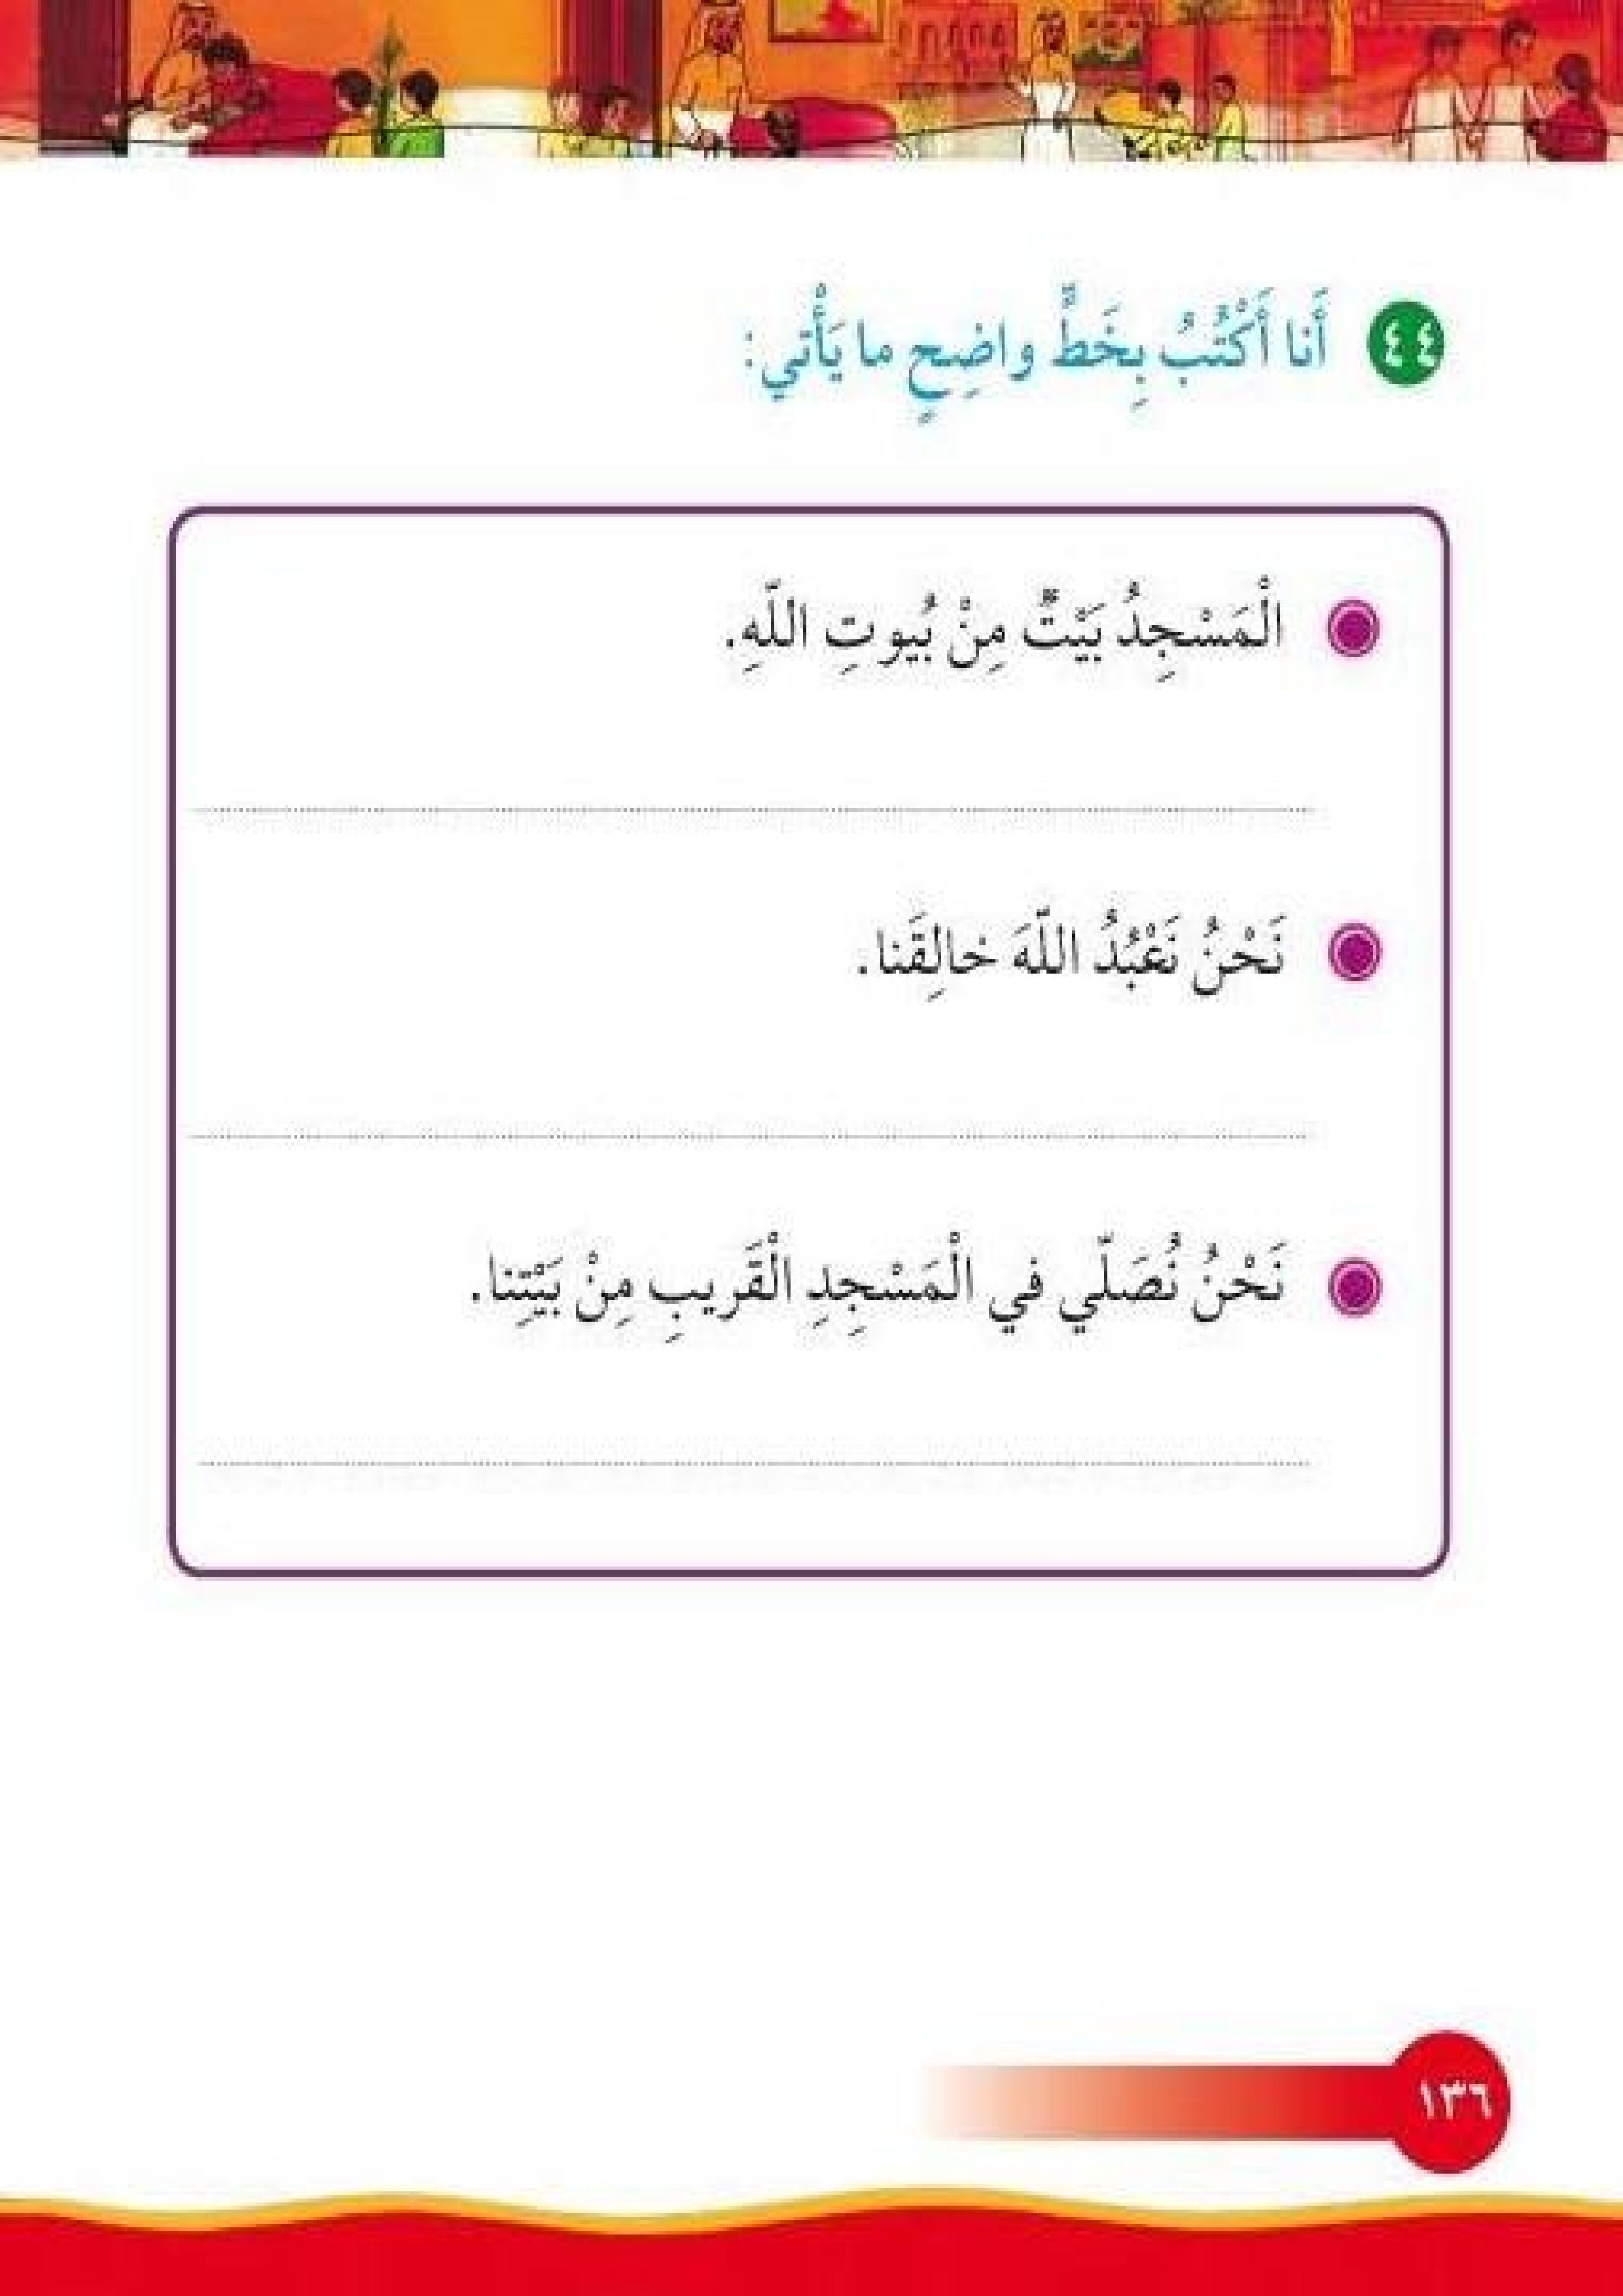 ٤٤ أَنا أَكْتُبُ بِخَطٍّ واضِحٍ ما يَأْتي:
الْمَسْجِدُ بَيْتٌ مِنْ بُيوتِ اللّهِ.
نَحْنُ نَعْبُدُ اللّهَ خالِقَنا.
نَحْنُ نُصَلّي في الْمَسْجِدِ الْقَريبِ مِنْ بَيْتِنا.
١٣٦